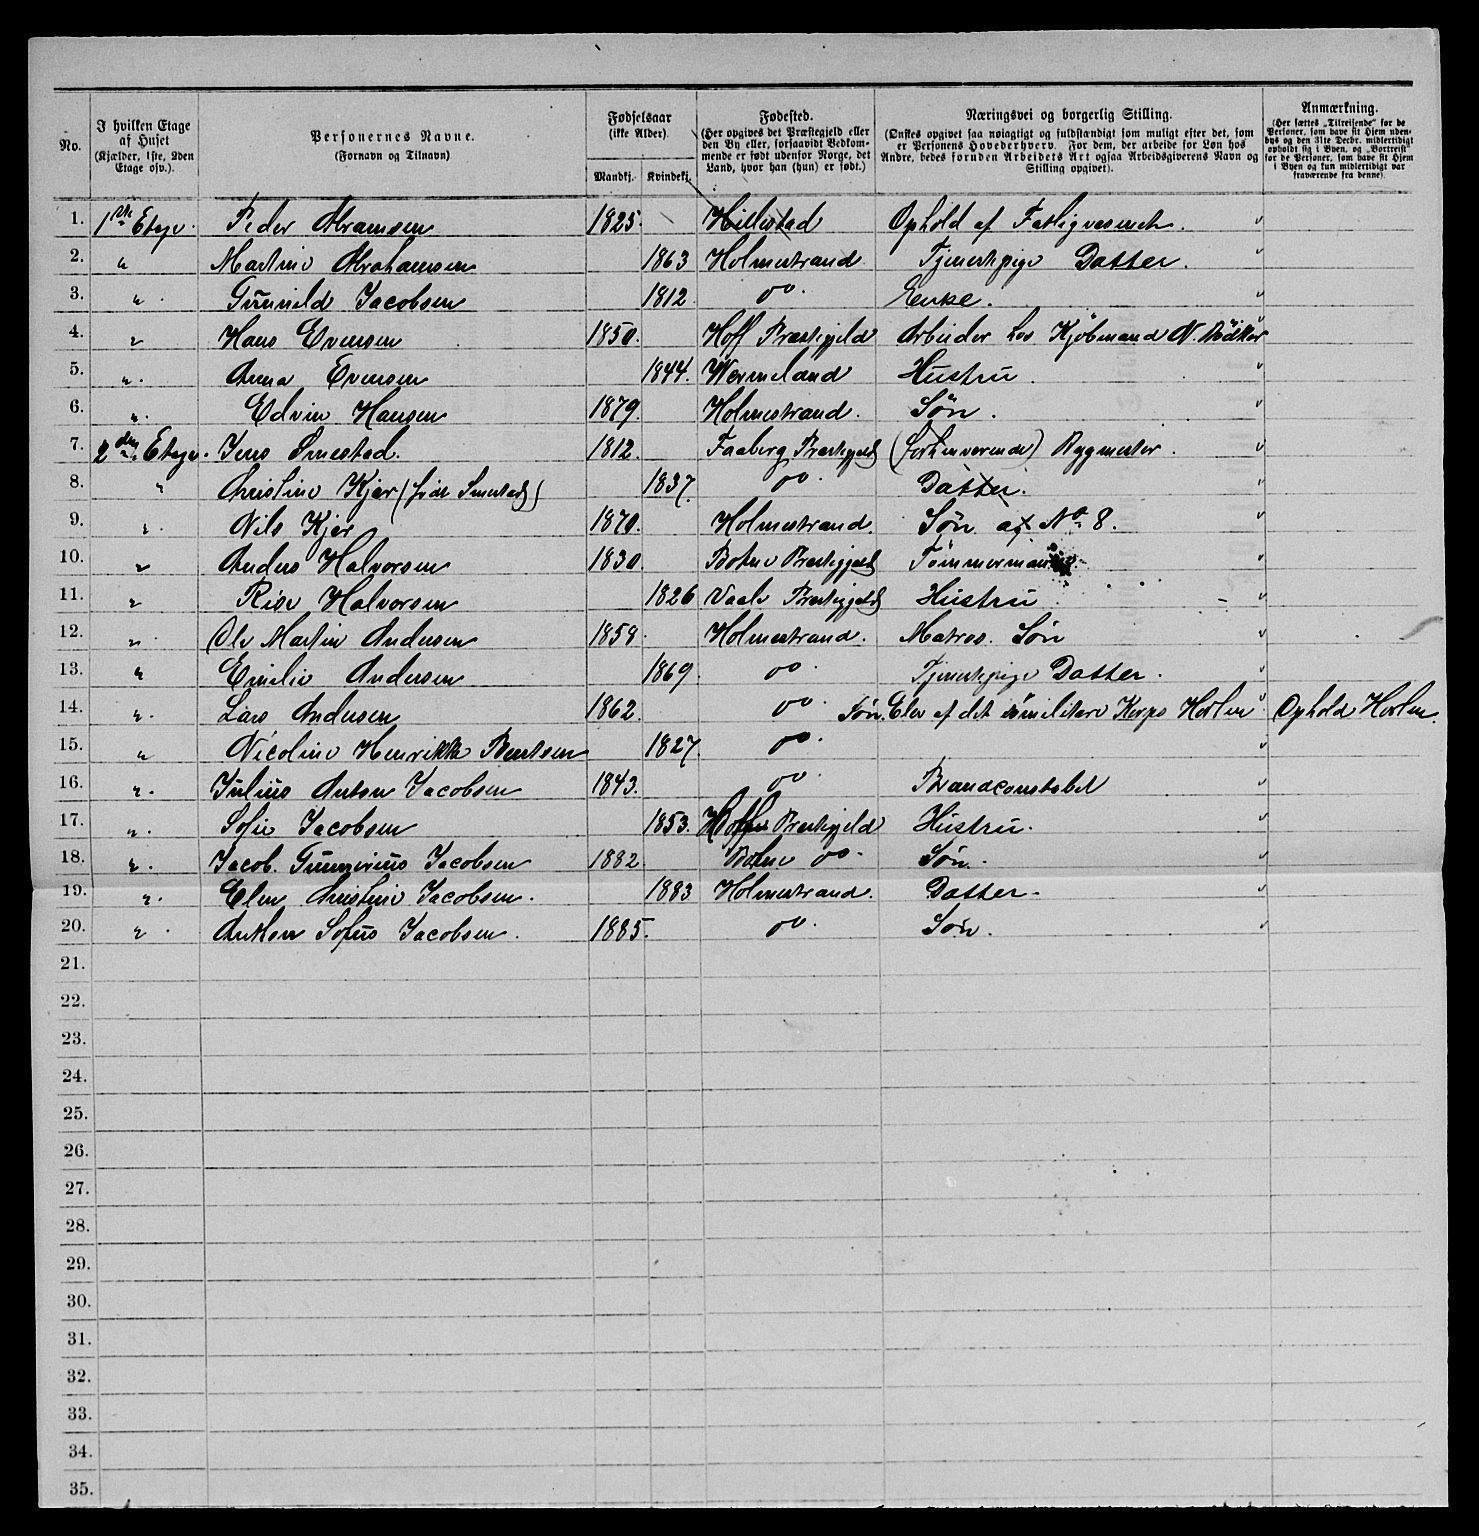 No.
I hvilken Etage af Huset (Kjælder, 1ste, 2den Etage osv.).
Personernes Navne. (Fornavn og Tilnavn)
Fødselsaar (ikke Alder). Mandkj. Kvindekj.
Fødested. (Her opgives det Præstegjeld eller den By eller, forsaavidt Bedkommende er født udenfor Norge, det Land, hvor han (hun) er født.)
Næringsvei og borgerlig Stilling. (Ønskes opgivet saa nøiagtigt og fuldstændigt som muligt efter det, som er Personens Hovederhverv. For dem, der arbeide for Løn hos Andre, bedes foruden Arbeidets Art ogsaa Arbeidsgiverens Navn og Stilling opgivet).
Anmærkning. (Her sættes „Tilreisende“ for de Personer, som have sit Hjem udenbys og den 31te Decbr. midlertidigt opholdt sig i Byen, og „Bortreist“ for de Personer, som have sit Hjem i Byen og kun midlertidigt var fraværende fra denne).
1. 1ste Etage. Peder Abramsen 1825. Hillestad Ophold af Fattigvæsenet.
2. " Martine Abrahamsen 1863 Holmestrand Tjenestepige Datter.
3. " Gunnild Jacobsen 1812 do. Enke.
4. " Hans Evensen 1850. Hoff Præstegjeld Arbeider hos Kjøbmand N. Bödker
5. " Anna Evensen 1844. Wermeland Hustru.
6. " Edvin Hansen 1879. Holmestrand. Søn.
7. 2den Etage. Jens Smestad. 1812. Faaberg Præstegjeld (forhenværende) Bygmester.
8. " Christine Kjær (født Smestad) 1837. do. Datter.
9. " Nils Kjer 1870. Holmestrand. Søn af No 8.
10. " Anders Halvorsen 1830. Botne Præstegjeld Tømmermand
11. " Risa Halvorsen 1826 Vaale Præstegjeld Hustru
12. " Ole Martin Andersen 1858. Holmestrand. Matros. Søn
13. " Emilie Andersen 1869. do. Tjenestepige Datter.
14. " Lars Andersen 1862. do. Søn. Elev af det militære Korps Horten Ophold Horten.
15. " Nicoline Henrikke Berntsen 1827. do.
16. " Julius Anton Jacobsen 1843. do. Brandconstabel
17. " Sofie Jacobsen 1853. Hoff Præstegjeld Hustru.
18. " Jacob Gunnerius Jacobsen 1882. Botne do. Søn.
19. " Elen Christine Jacobsen. 1883 Holmestrand. Datter.
20. " Anthon Sofus Jacobsen. 1885. do. Søn.
21.
22.
23.
24.
25.
26.
27.
28.
29.
30.
31.
32.
33.
34.
35.